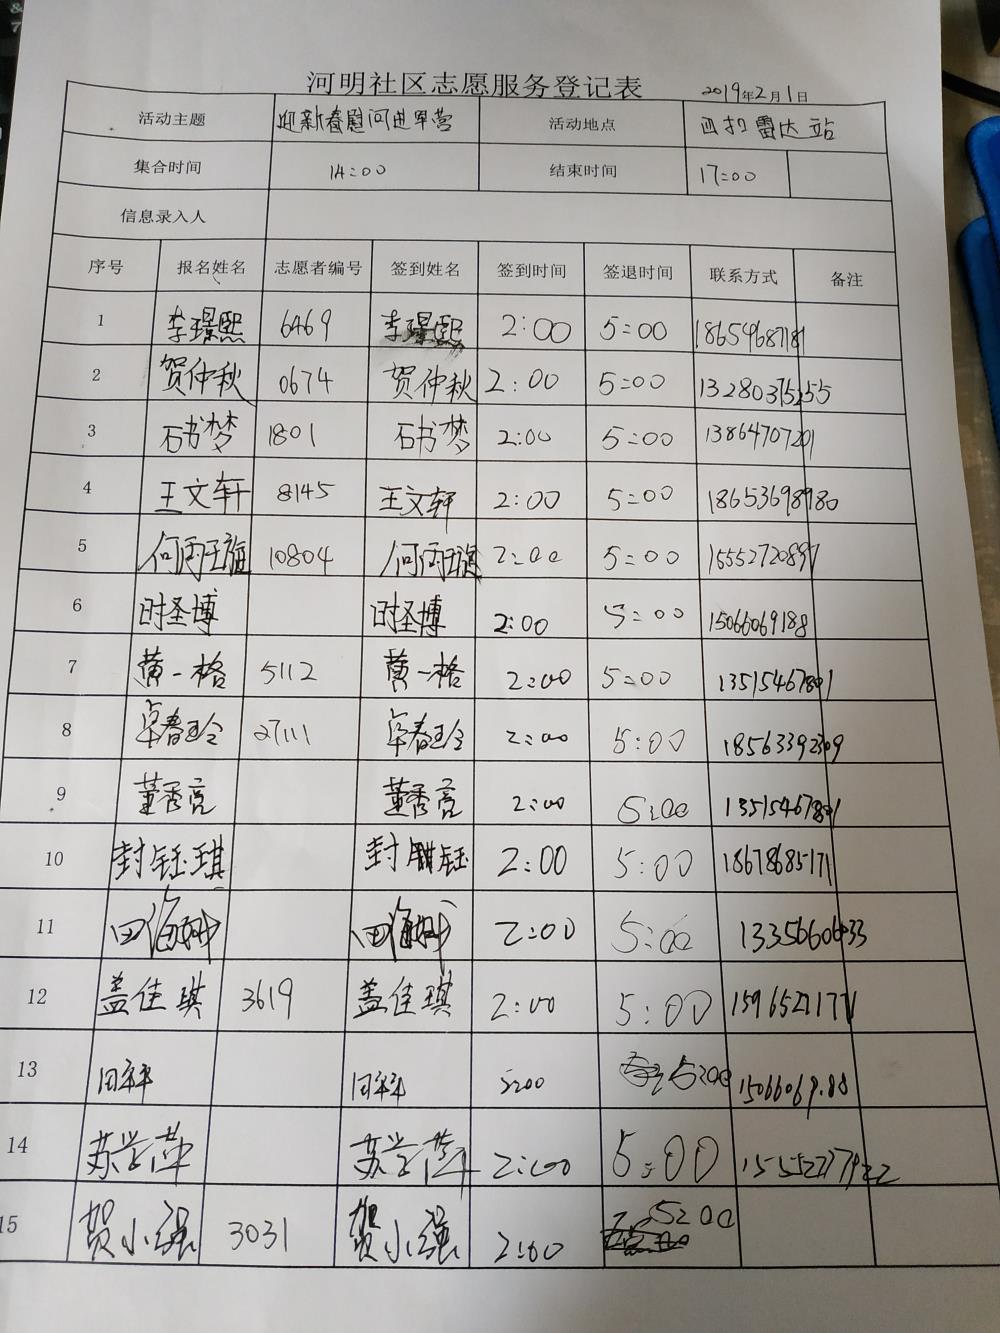 河明社区志愿服务登记表 2019年2月1日
活动主题 迎新春慰问进军营 活动地点 雷达站
集合时间 14:00 结束时间 17:00
信息录入人
序号 报名姓名 志愿者编号 签到姓名 签到时间 签退时间 联系方式 备注
1 李璟熙 6469 李璟熙 2:00 5:00 18654687181
2 贺仲秋 0674 贺仲秋 2:00 5:00 13280375255
3 石书梦 1801 石书梦 2:00 5:00 13864707201
4 王文轩 8145 王文轩 2:00 5:00 18653698980
5 何雨璇 10804 何雨璇 2:00 5:00 15552720897
6 时圣博 时圣博 2:00 5:00 15066069188
7 黄一格 5112 黄一格 2:00 5:00 13515467801
8 卓春玲 27111 卓春玲 2:00 5:00 18563392309
9 董秀亮 董秀亮 2:00 5:00 13515467801
10 封钰琪 封 钰 2:00 5:00 18678685171
11 田海 田海 2:00 5:00 13356606433
12 盖佳琪 3619 盖佳琪 2:00 5:00 15965271771
13 5:00
14 苏学萍 苏学萍 2:00 5:00
15 贺小强 3031 贺小强 2:00 5:00